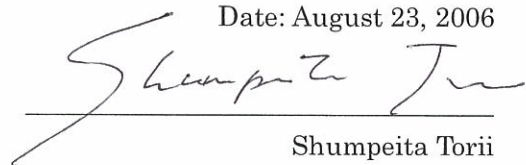 Date: August 23, 2006
Shumpeita Torii
Shumpeita Torii